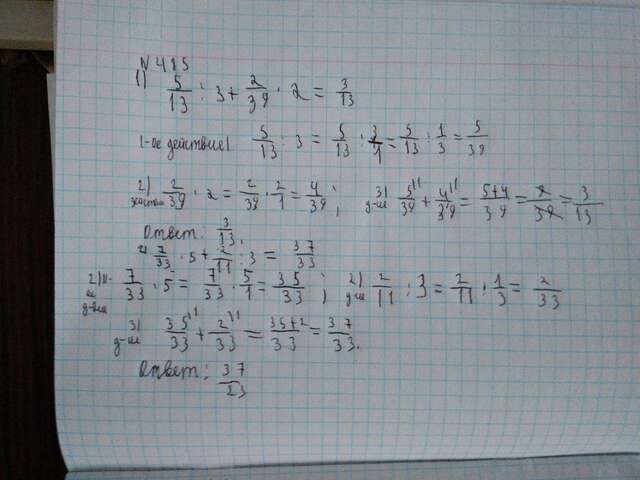 N 485
1) 5/13 : 3 + 2/39 · 2 = 3/13
1-ое действие) 5/13 : 3 = 5/13 : 3/1 = 5/13 · 1/3 = 5/39
2) 2/39 · 2 = 2/39 · 2/1 = 4/39 ; 3) д-ие 5/39 + 4/39 = 5+4/39 = 9/39 = 3/13
Ответ: 3/13.
2) 7/33 · 5 + 2/11 : 3 = 37/33
7/33 · 5 = 7/33 · 5/1 = 35/33 ; 2) д-ие 2/11 : 3 = 2/11 · 1/3 = 2/33
3) д-ие 35/33 + 2/33 = 35+2/33 = 37/33.
Ответ: 37/23